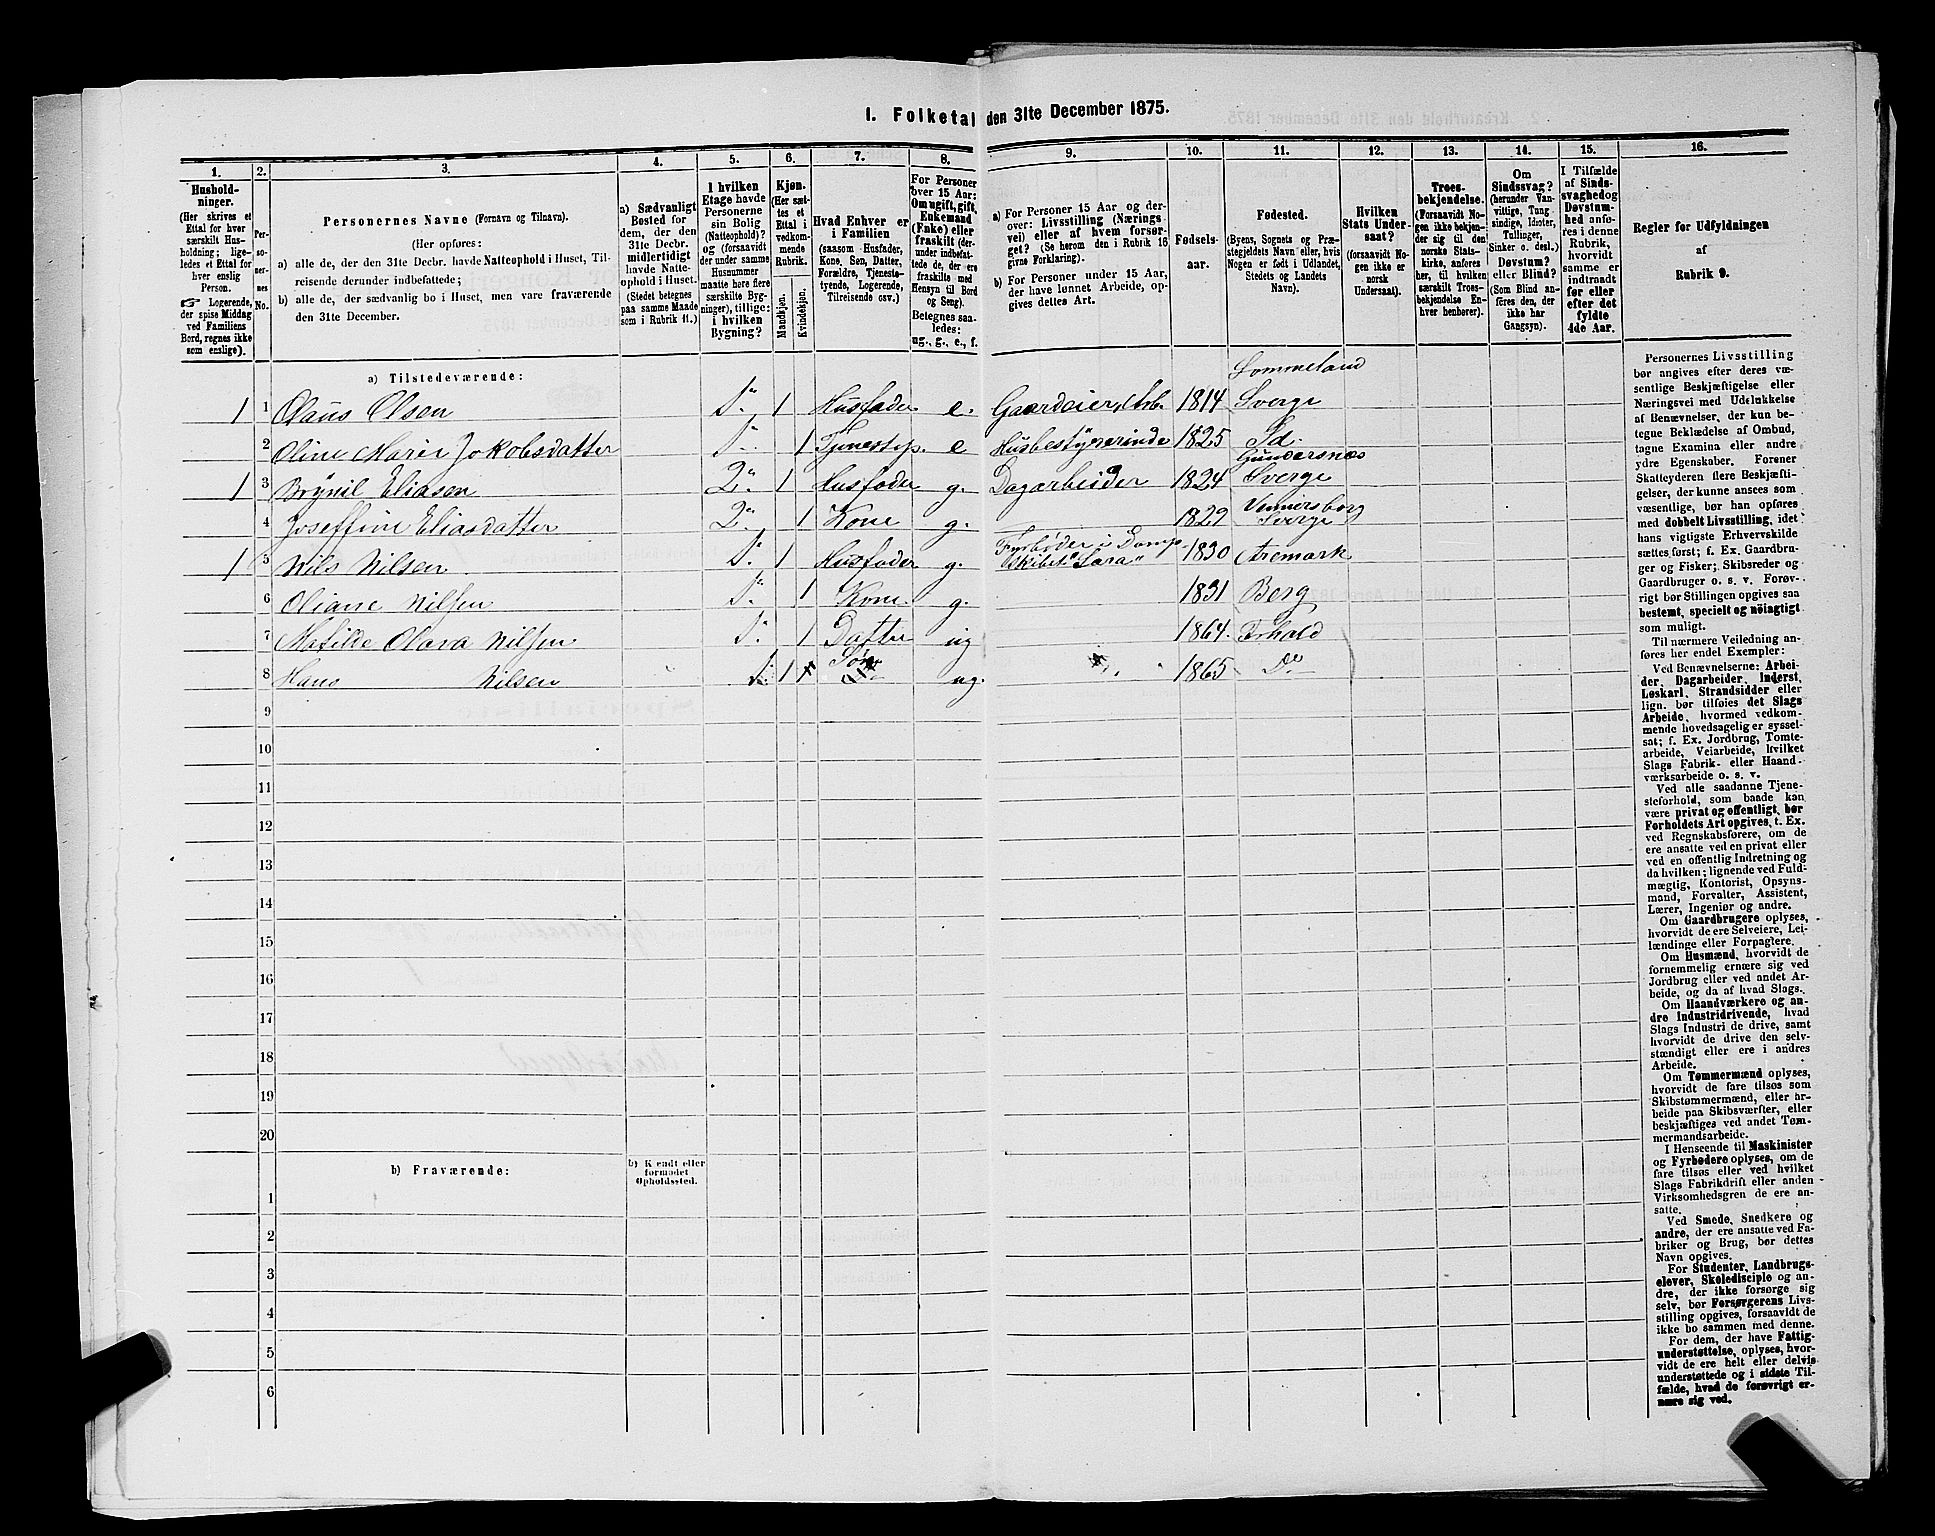 1. Folketal den 31te December 1875.
1.
2.
3.
4.
5.
6.
7.
8.
9.
10.
11.
12.
13.
14.
15.
16.
Hushold-
ninger.
(Her skrives et
Ettal for hver
særskilt Hus-
holdning; lige-
ledes et Ettal for
hver enslig
Person.
☞ Logerende,
der spise Middag
ved Familiens
Bord, regnes ikke
som enslige).
Per-
so-
ner-
nes
No.
Personernes Navne (Fornavn og Tilnavn).
(Her opføres:
a) alle de, der den 31te Decbr. havde Natteophold i Huset, Til-
reisende derunder indbefattede;
b) alle de, der sædvanlig bo i Huset, men vare fraværende
den 31te December.
a) Sædvanligt
Bosted for
dem, der den
31te Decbr.
midlertidigt
havde Natte-
ophold i Huset.
(Stedet betegnes
paa samme Maade
som i Rubrik 11.)
I hvilken
Etage havde
Personerne
sin Bolig
(Natteophold)?
og (forsaavidt
der under samme
Husnummer
maatte høre flere
særskilte Byg-
ninger), tillige:
i hvilken
Bygning?
Kjøn.
(Her sæt-
tes et
Ettal i
vedkom-
mende
Rubrik.
Mandkjøn.
Kvindekjøn.
Hvad Enhver er
i Familien
(saasom Husfader,
Kone, Søn, Datter,
Forældre, Tjeneste-
tyende, Logerende,
Tilreisende osv.)
For Personer
over 15 Aar:
Om ugift, gift,
Enkemand
(Enke) eller
fraskilt (der-
under indbefat-
tede de, der ere
fraskilte med
Hensyn til Bord
og Seng).
Betegnes saa-
ledes:
ug., g., e., f.
a) For Personer 15 Aar og der-
over: Livsstilling (Nærings-
vei) eller af hvem forsør-
get? (Se herom den i Rubrik 16
givne Forklaring).
b) For Personer under 15 Aar,
der have lønnet Arbeide, op-
gives dettes Art.
Fødsels-
aar.
Fødested.
(Byens, Sognets og Præ-
stegjeldets Navn eller, hvis
Nogen er født i Udlandet,
Stedets og Landets
Navn).
Hvilken
Stats Under-
saat?
(forsaavidt No-
gen ikke er
norsk
Undersaat).
Troes-
bekjendelse.
(Forsaavidt No-
gen ikke bekjen-
der sig til den
norske Stats-
kirke, anføres
her, til hvilken
særskilt Troes-
bekjendelse En-
hver henhører).
Om
Sindssvag?
(herunder Van-
vittige, Tung-
sindige, Idioter,
Tullinger,
Sinker o. desl.)
Døvstum?
eller Blind?
(Som Blind an-
føres den, der
ikke har
Gangsyn).
I Tilfælde
af Sinds-
svaghed og
Døvstum-
hed anfø-
res i denne
Rubrik,
hvorvidt
samme er
indtraadt
før eller
efter det
fyldte
4de Aar.
Regler for Udfyldningen
af
Rubrik 9.
a) Tilstedeværende:
Sommeland
1 1 Olaus Olsen 1 Husfader e. Gaardeier, Arb. 1814 Sverge
2 Oline Marie Jokobsdatter 1 Tjenestep. e Husbestyrerinde 1825 Id.
Gundersnæs
1 3 Brynil Eliasen 2 1 Husfader g. Dagarbeider 1824 Sverge
Vennersborg
4 Joseffine Eliasdatter 2 1 Kone g. 1829 Sverge
Fyrbøder i Damp-
1 5 Nils Nilsen 1 Husfader g. Skibet "Sara" 1830 Aremark
6 Oliane Nilsen 1 Kone g. 1831 Berg
7 Matilde Clara Nilsen 1 Datter ug 1864 Frhald
8 Hans Nilsen 1 Søn ug. 1865 Do
9
10
11
12
13
14
15
16
17
18
19
20
b) Fraværende:
b) Kjendt eller
formodet
Opholdssted.
1
2
3
4
5
6
Personernes Livsstilling
bør angives efter deres væ-
sentlige Beskjæftigelse eller
Næringsvei med Udelukkelse
af Benævnelser, der kun be-
tegne Beklædelse af Ombud,
tagne Examina eller andre
ydre Egenskaber. Forener
Skatteyderen flere Beskjæfti-
gelser, der kunne ansees som
væsentlige, bør han opføres
med dobbelt Livsstilling, idet
hans vigtigste Erhvervskilde
sættes først; f. Ex. Gaardbru-
ger og Fisker; Skibsreder og
Gaardbruger o. s. v. Forøv-
rigt bør Stillingen opgives saa
bestemt, specielt og nöiagtigt
som muligt.
Til nærmere Veiledning an-
føres her endel Exempler:
Ved Benævnelserne: Arbei-
der, Dagarbeider, Inderst,
Løskarl, Strandsidder eller
lign. bør tilføies det Slags
Arbeide, hvormed vedkom-
mende hovedsagelig er syssel-
sat; f. Ex. Jordbrug, Tomte-
arbeide, Veiarbeide, hvilket
Slags Fabrik- eller Haand-
værksarbeide o. s. v.
Ved alle saadanne Tjene-
steforhold, som baade kan
være privat og offentligt, bør
Forholdets Art opgives, t. Ex.
ved Regnskabsførere, om de
ere ansatte ved en privat eller
ved en offentlig Indretning og
da hvilken; lignende ved Fuld-
mægtig, Kontorist, Opsyns-
mand, Forvalter, Assistent,
Lærer, Ingeniør og andre.
Om Gaardbrugere oplyses,
hvorvidt de ere Selveiere, Lei-
lændinge eller Forpagtere.
Om Husmænd, hvorvidt de
fornemmelig ernære sig ved
Jordbrug eller ved andet Ar-
beide, og da af hvad Slags.
Om Haandværkere og an-
dre Industridrivende, hvad
Slags Industri de drive, samt
hvorvidt de drive den selv-
stændigt eller ere i andres
Arbeide.
Om Tømmermænd oplyses,
hvorvidt de fare tilsøs som
Skibstømmermænd, eller ar-
beide paa Skibsværfter, eller
beskjæftiges ved andet Tøm-
mermandsarbeide.
I Henseende til Maskinister
og Fyrbødere oplyses, om de
fare tilsøs eller ved hvilket
Slags Fabrikdrift eller anden
Virksomhedsgren de ere an-
satte.
Ved Smede, Snedkere og
andre, der ere ansatte ved Fa-
briker og Brug, bør dettes
Navn opgives.
For Studenter, Landbrugs-
elever, Skoledisciple og an-
dre, der ikke forsørge sig
selv, bør Forsørgerens Livs-
stilling opgives, forsaavidt de
ikke bo sammen med denne.
For dem, der have Fattig-
understøttelse, oplyses, hvor-
vidt de ere helt eller delvis
understøttede og i sidste Til-
fælde, hvad de forøvrigt er-
nære sig ved.